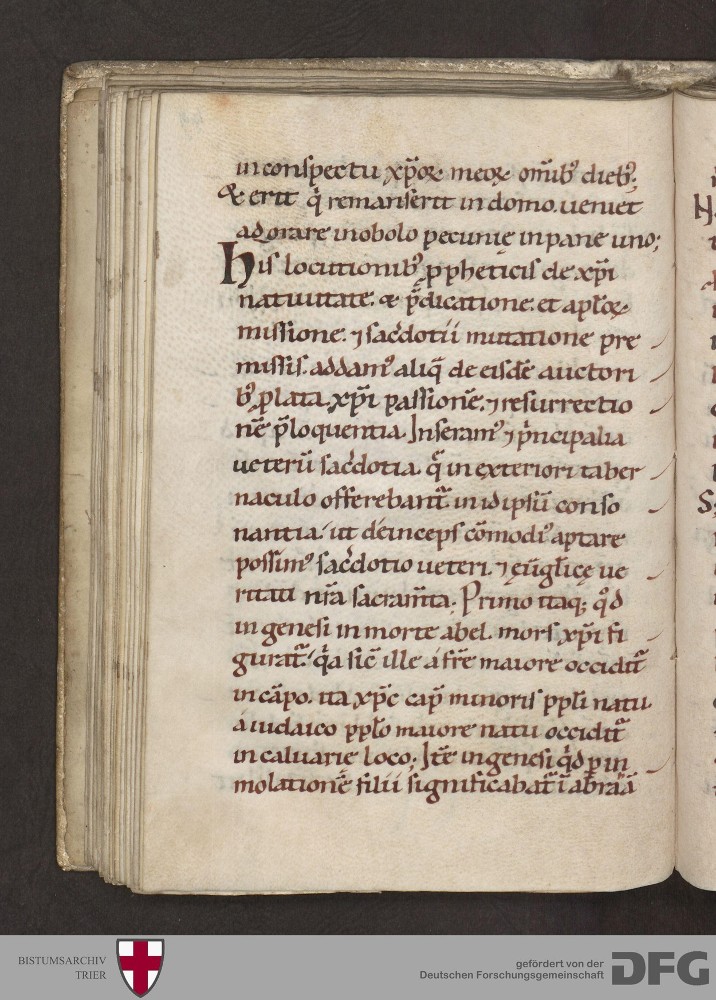 in conspectu xp̄oꝝ meoꝝ om̄ib; dieb;
& erit q̄ remanserit in domo. ueniet
adorare in obolo pecunię in pane uno;
His locutionib; ꝓpheticis de xp̄i
natiuitate. & p̄dicatione. et apl̄oꝝ
missione. ⁊ sac̄dotii mutatione pre
missis. addam᾽ aliq̄ de eisdē auctori
b; ꝓlata. xp̄i passionē. ⁊ resurrectio
nē p̄loquentia. Inseram᾽ ⁊ p̄ncipalia
ueterū sac̄dotia. q̄ in exteriori taber
naculo offerebant᷑ in id ipsū conso
nantia. ut deinceps cōmodi᾽ aptare
possim᾽ sac̄dotio ueteri. ⁊ eūgl̄icę ue
ritati nr̄a sacram̄ta. Primo itaq; qd̄
in genesi in morte abel. mors xp̄i fi
gurat᷑. q̄a sic̄ ille a fr̄e maiore occidit᷑
in cāpo. ita xp̄c cap̄ minoris ppl̄i natu
a iudaico ppl̄o maiore natu occidit᷑
in caluarie loco; Itē in genesi qd̄ ꝑ im
molationē filii significabat᷑ ī abraā
BISTUMSARCHIV
TRIER
gefördert von der
Deutschen Forschungsgemeinschaft
DFG